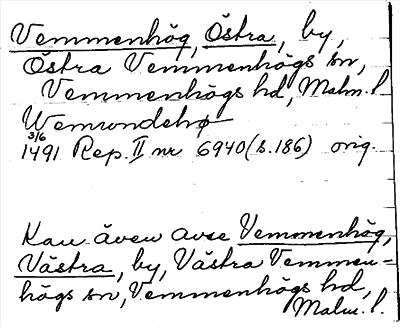 Vemmenhög, Östra, by,
Östra Vemmenhögs sn,
Vemmenhögs hd, Malm. l.
Wemondehø
3/6
1491 Rep. II nr 6940 (s. 186) orig.
Kan även avse Vemmenhög,
Västra, by, Västra Vemmen=
högs sn, Vemmenhögs hd,
Malm. l.